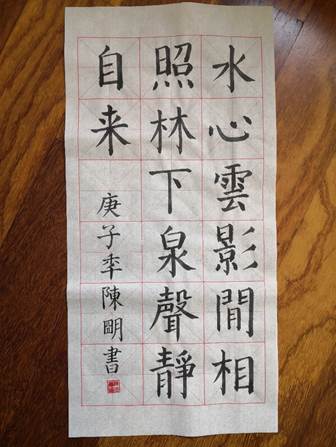 水心雲影閒相
照林下泉聲靜
自来
庚子季陳明書